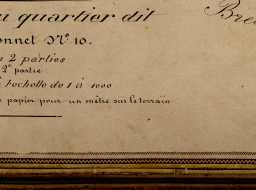 u quartier dit
Bre
onnet Nº 10.
2 parties
2ᵉ partie
l'echelle de 1 à 1000
papier pour un mètre sur le terrain